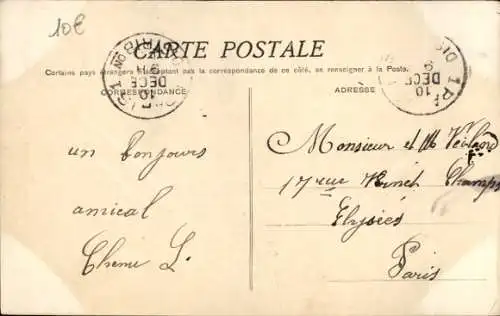 10€
CARTE POSTALE
Certains pays étrangers n'acceptant pas la correspondance de ce côté, se renseigner à la Poste.
CORRESPONDANCE
ADRESSE
10
DECE
10
DECE
un bonjours
amical
L.
Monsieur et M
17 rue Champs
Elysées
Paris